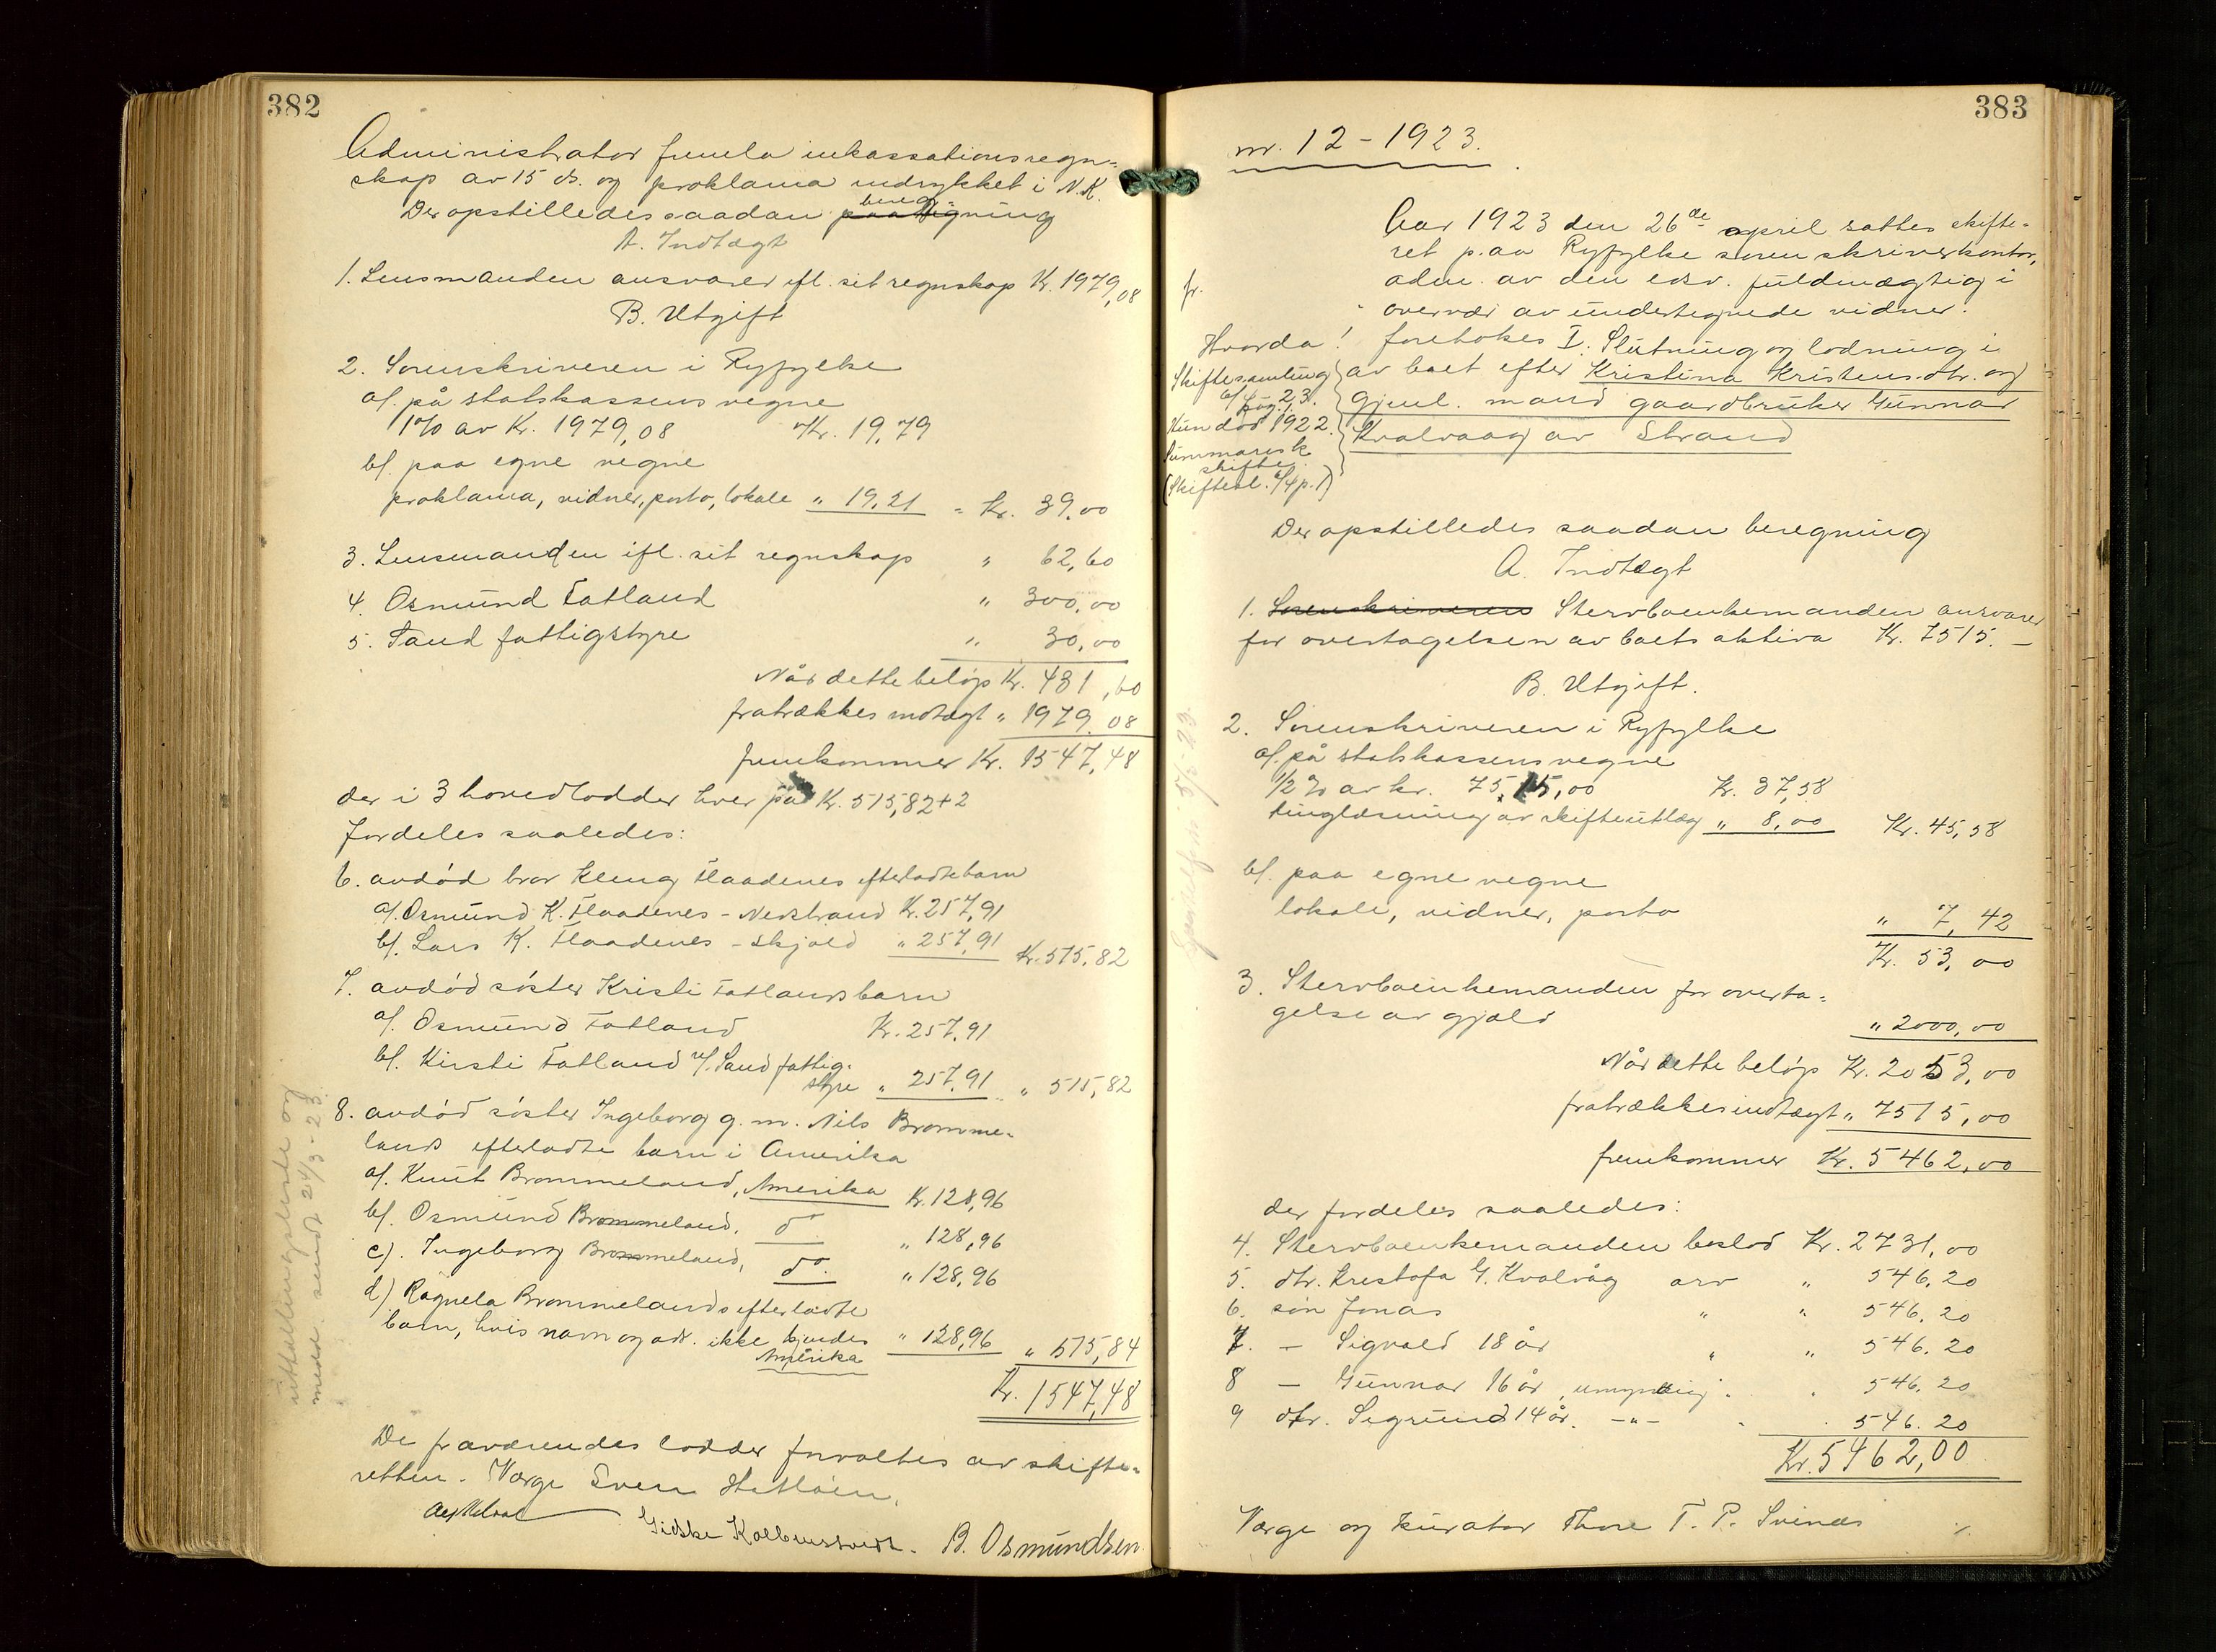 382
Administrator fremla inkassationsregn-
skap av 15 ds. og proklama indrykket i N.K.
Der opstilledes saadan bereg-
ning
A. Indtægt
1. Lensmanden ansvarer ifl. sit regnskap Kr. 1979,08
B. Utgift
2. Sorenskriveren i Ryfylke
a/. på statskassens vegne
1% av Kr. 1979,08 Kr. 19,79
b/. paa egne vegne
proklama, vidner, porto, lokale " 19,21 = Kr. 39,00
3. Lensmanden ifl. sit regnskap " 62,60
4. Osmund Fatland " 300,00
5. Sand fattigstyre " 30,00
Når dette beløp Kr. 431,60
fratrækkes indtægt " 1979,08
fremkommer Kr. 1547,48
der i 3 hovedlodder hver på Kr. 515,82+2
fordeles saaledes:
6. avdød bror Kleng Flaadenes efterladte barn
a/. Osmund K. Flaadenes - Nedstrand Kr. 257,91
b/. Lars K. Flaadenes - Skjold " 257,91 Kr. 515,82
7. avdød søster Kristi Fatlands barn
a/. Osmund Fatland Kr. 257,91
b/. Kirsti Fatland v/ Sand fattig-
styre " 257,91 " 515,82
8. avdød søster Ingeborg g. m. Nils Bromme-
lands efterladte barn i Amerika
a/. Knut Brommeland, Amerika Kr. 128,96
b/. Osmund Brommeland, do " 128,96
c). Ingeborg Brommeland, do. " 128,96
d) Ragnela Brommelands efterladte
barn, hvis navn og adr. ikke kjendes " 128,96 " 515,84
Amerika
Kr. 1547,48
De fraværendes lodder forvaltes av skifte-
retten. Værge Sven Hetløen.
Gidske Kolbenstvedt. B. Osmundsen
utbetalingsliste og
medd. sendt 24/3-23.
383
nr. 12-1923.
Aar 1923 den 26de april sattes skifte-
ret paa Ryfylke sorenskriverkontor,
adm. av den edsv. fuldmægtig i
overvær av undertegnede vidner.
fr.
Hvorda! foretokes I. Slutning og lodning i
av boet efter Kristina Kristensdtr. og
gjenl. mand gaardbruker Gunnar
Kvalvaag av Strand
Skiftesamling
Hun død 1922.
Summarisk
skifte.
Der opstilledes saadan beregning
A. Indtægt
1. Sorenskriveren Stervboenkemanden ansvarer
for overtagelsen av boets aktiva Kr. 7515.-
B. Utgift.
2. Sorenskriveren i Ryfylke
a/. på statskassens vegne
1/2 % av kr. 7515,00 Kr. 37,58
tinglæsning av skifteutlæg " 8,00 Kr. 45,58
b/. paa egne vegne
lokale, vidner, porto " 7,42
Kr. 53,00
3. Stervboenkemanden for overta-
gelse av gjæld " 2000,00
Når dette beløp Kr. 2053,00
fratrækkes indtægt " 7515,00
fremkommer Kr. 5462,00
der fordeles saaledes:
4. Stervboenkemanden boslod Kr. 2731,00
5. dtr. Kristofa G. Kvalvåg arv " 546,20
6. søn Jonas " " 546,20
7. - Sigvald 18 år " " 546,20
8 - Gunnar 16 år, umyndig " . 546,20
9 dtr. Sigrund 14 år. -"- . . 546.20
Kr. 5462,00
Værge og kurator Thore T. P. Svines ./.